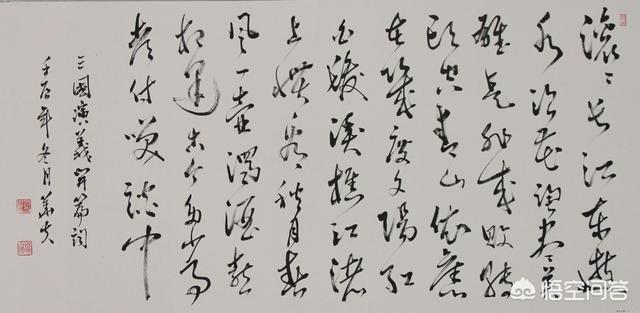 滚滚长江东逝
水浪花淘尽英
雄是非成败转
头空青山依旧
在幾度夕陽红
白髮漁樵江渚
上惯看秋月春
风一壶濁酒喜
相逢古今多少事
都付笑談中
三國演義開篇詞
壬辰年冬月
悟空问答